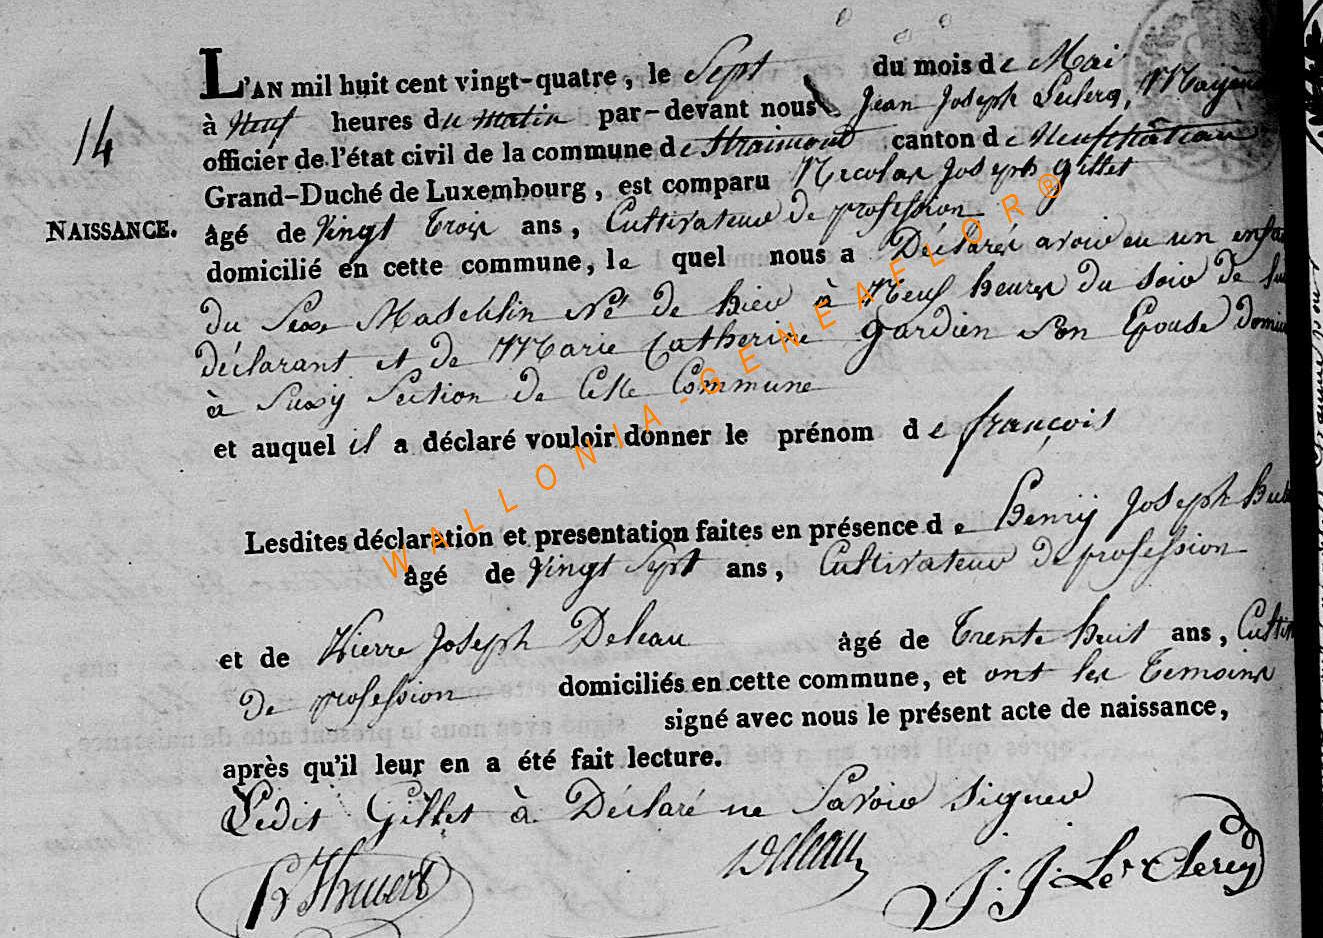 L'AN mil huit cent vingt-quatre, le Sept du mois de Mai
14
à Neuf heures du matin par-devant nous Jean Joseph Leclerq,
officier de l'état civil de la commune de Straimont canton de Neufchâteau
Grand-Duché de Luxembourg, est comparu Nicolas Joseph Gillet
NAISSANCE.
âgé de Vingt Trois ans, Cultivateur de profession
domicilié en cette commune, le quel nous a Déclarés avoir eu un
du Sexe Masculin Né de hier à Neuf heures du soir de
déclarant et de Marie Catherine Gardien Son Epouse
à Suxy Section de Cette Commune
et auquel il a déclaré vouloir donner le prénom de françois
Lesdites déclaration et presentation faites en présence de Henrÿ Joseph
âgé de Vingt Sept ans, Cultivateur de profession
et de Pierre Joseph Deleau âgé de Trente huit ans,
de profession domiciliés en cette commune, et ont les Temoins
signé avec nous le présent acte de naissance,
après qu'il leur en a été fait lecture.
Ledit Gillet à Déclaré ne Savoir Signer
Deleau
WALLONIA-GENEAFLOR®